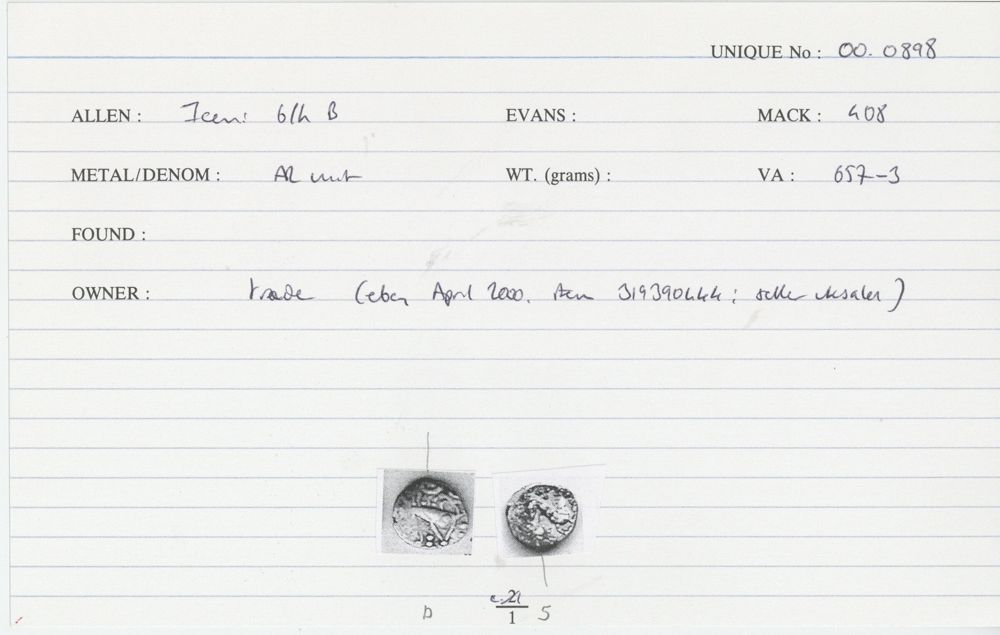 UNIQUE No : 00. 0898
ALLEN : Iceni 6/h B EVANS : MACK : 408
METAL/DENOM : AR unit WT. (grams) : VA : 657-3
FOUND :
OWNER : trade (ebay April 2000. Item 319390444 ; seller )
D 1 S